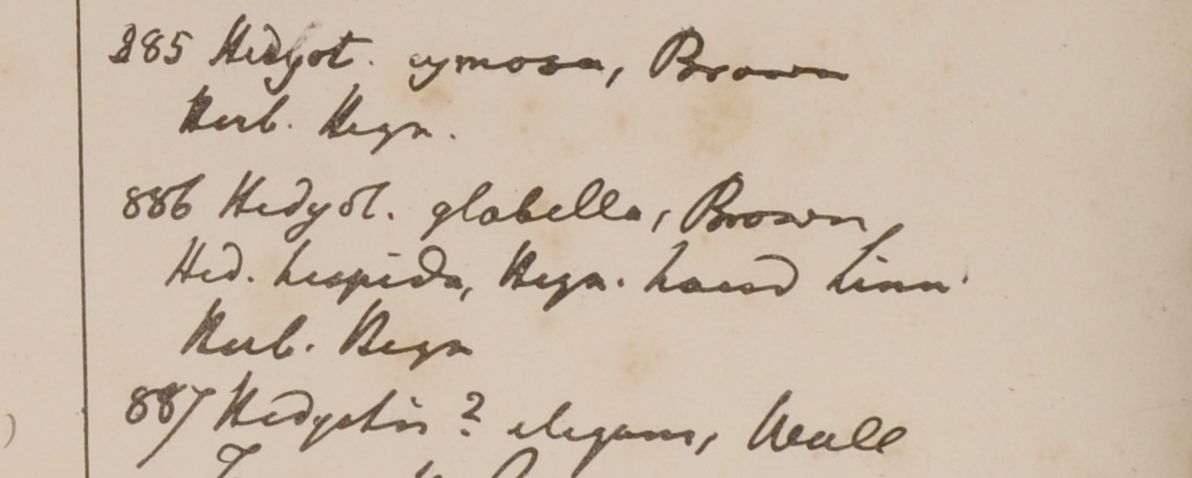 885 Hedyot. cymosa, Brown
Herb. Heyn.
886 Hedyot. glabella, Brown,
Hed. hispida, Heyn. haud Linn.
Herb. Heyn
887 Hedyotis? elegans, Wall